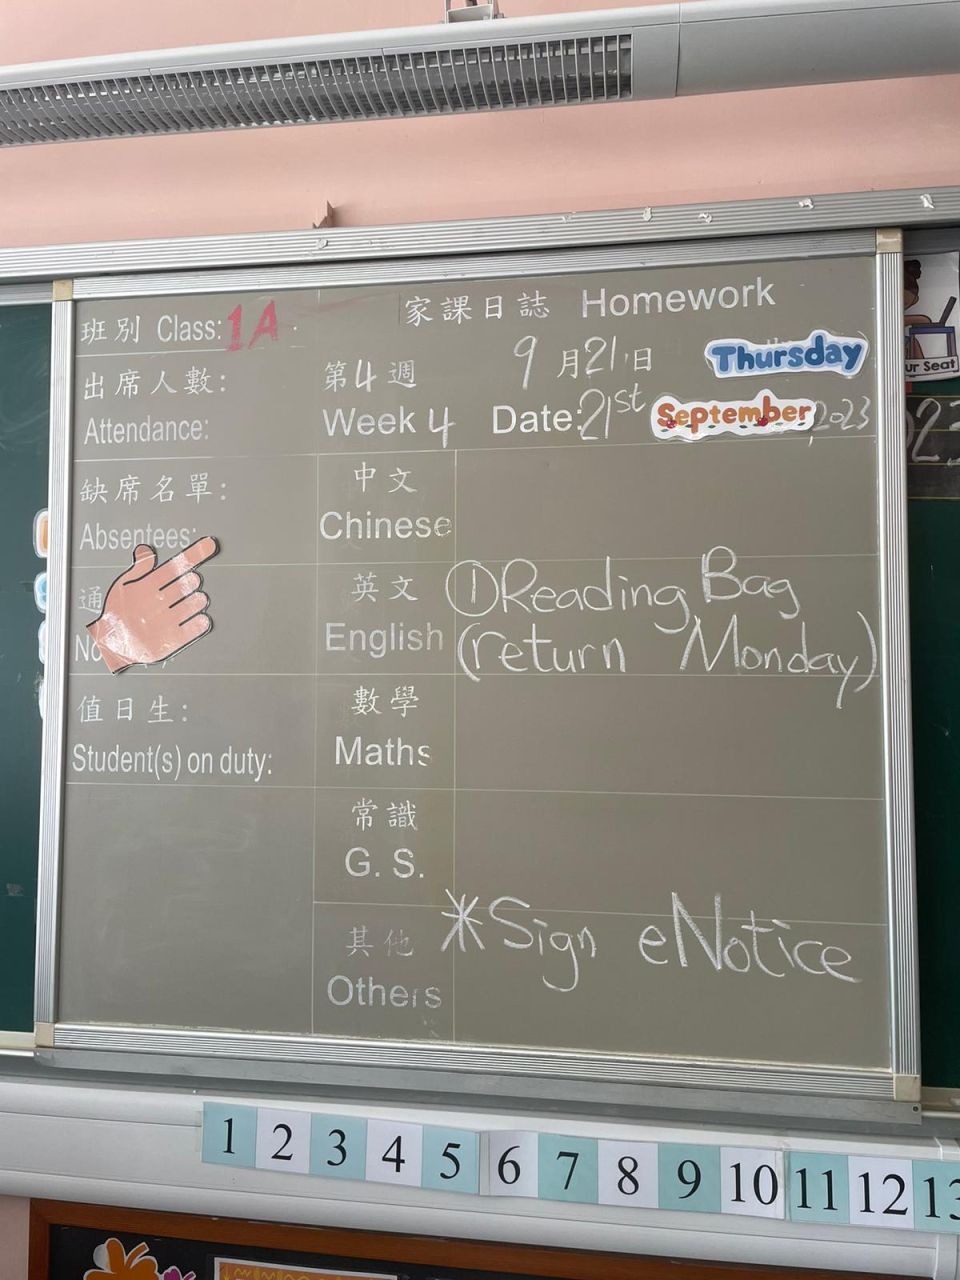 班別 Class: 1A
家課日誌 Homework
出席人數:
Attendance:
第4週 9月21日 Thursday
Week 4 Date: 21st September, 2023
缺席名單:
Absentees:
通
No
值日生:
Student(s) on duty:
中文
Chinese
英文
English
①Reading Bag
(return Monday)
數學
Maths
常識
G. S.
其他
Others
*Sign eNotice
ur Seat
1 2 3 4 5 6 7 8 9 10 11 12 13